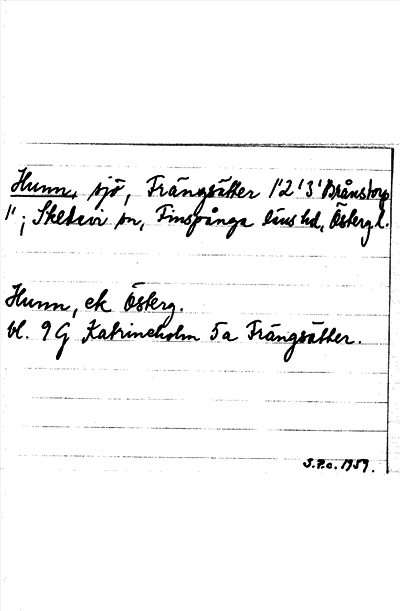 Hunn, sjö, Frängsätter 1'2'3' Brånstorp
1'; Skedevi sn, Finspånga läns hd, Östergl.
Hunn, ek Österg.
bl. 9 G Katrineholm 5a Frängsätter.
S.P.c. 1959.